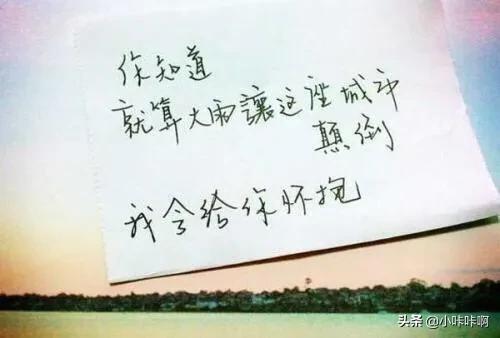 你知道
就算大雨讓这座城市
顛倒
我会给你怀抱
头条 @小咔咔啊